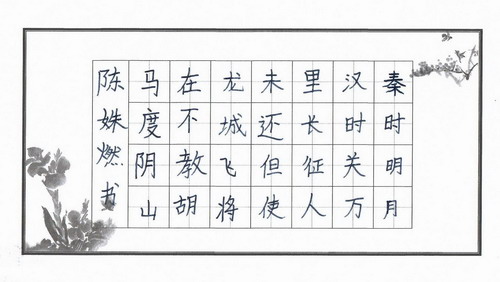 秦时明月
汉时关万
里长征人
未还但使
龙城飞将
在不教胡
马度阴山
陈姝燃书